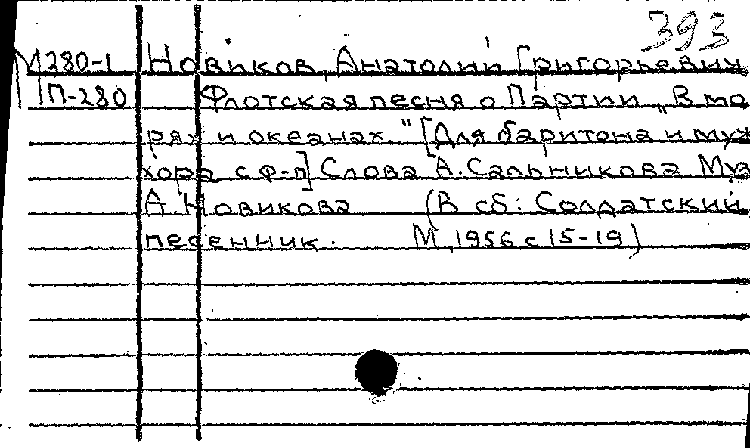 393
М280-1 Новиков, Анатолий Григорьевич
П-280 Флотская песня о Партии „В мо
рях и океанах..." [Для баритона и муж
хора с ф-п] Слова А. Сальникова Муз
А. Новикова (В сб: Солдатский
песенник. М, 1956 с 15-19)